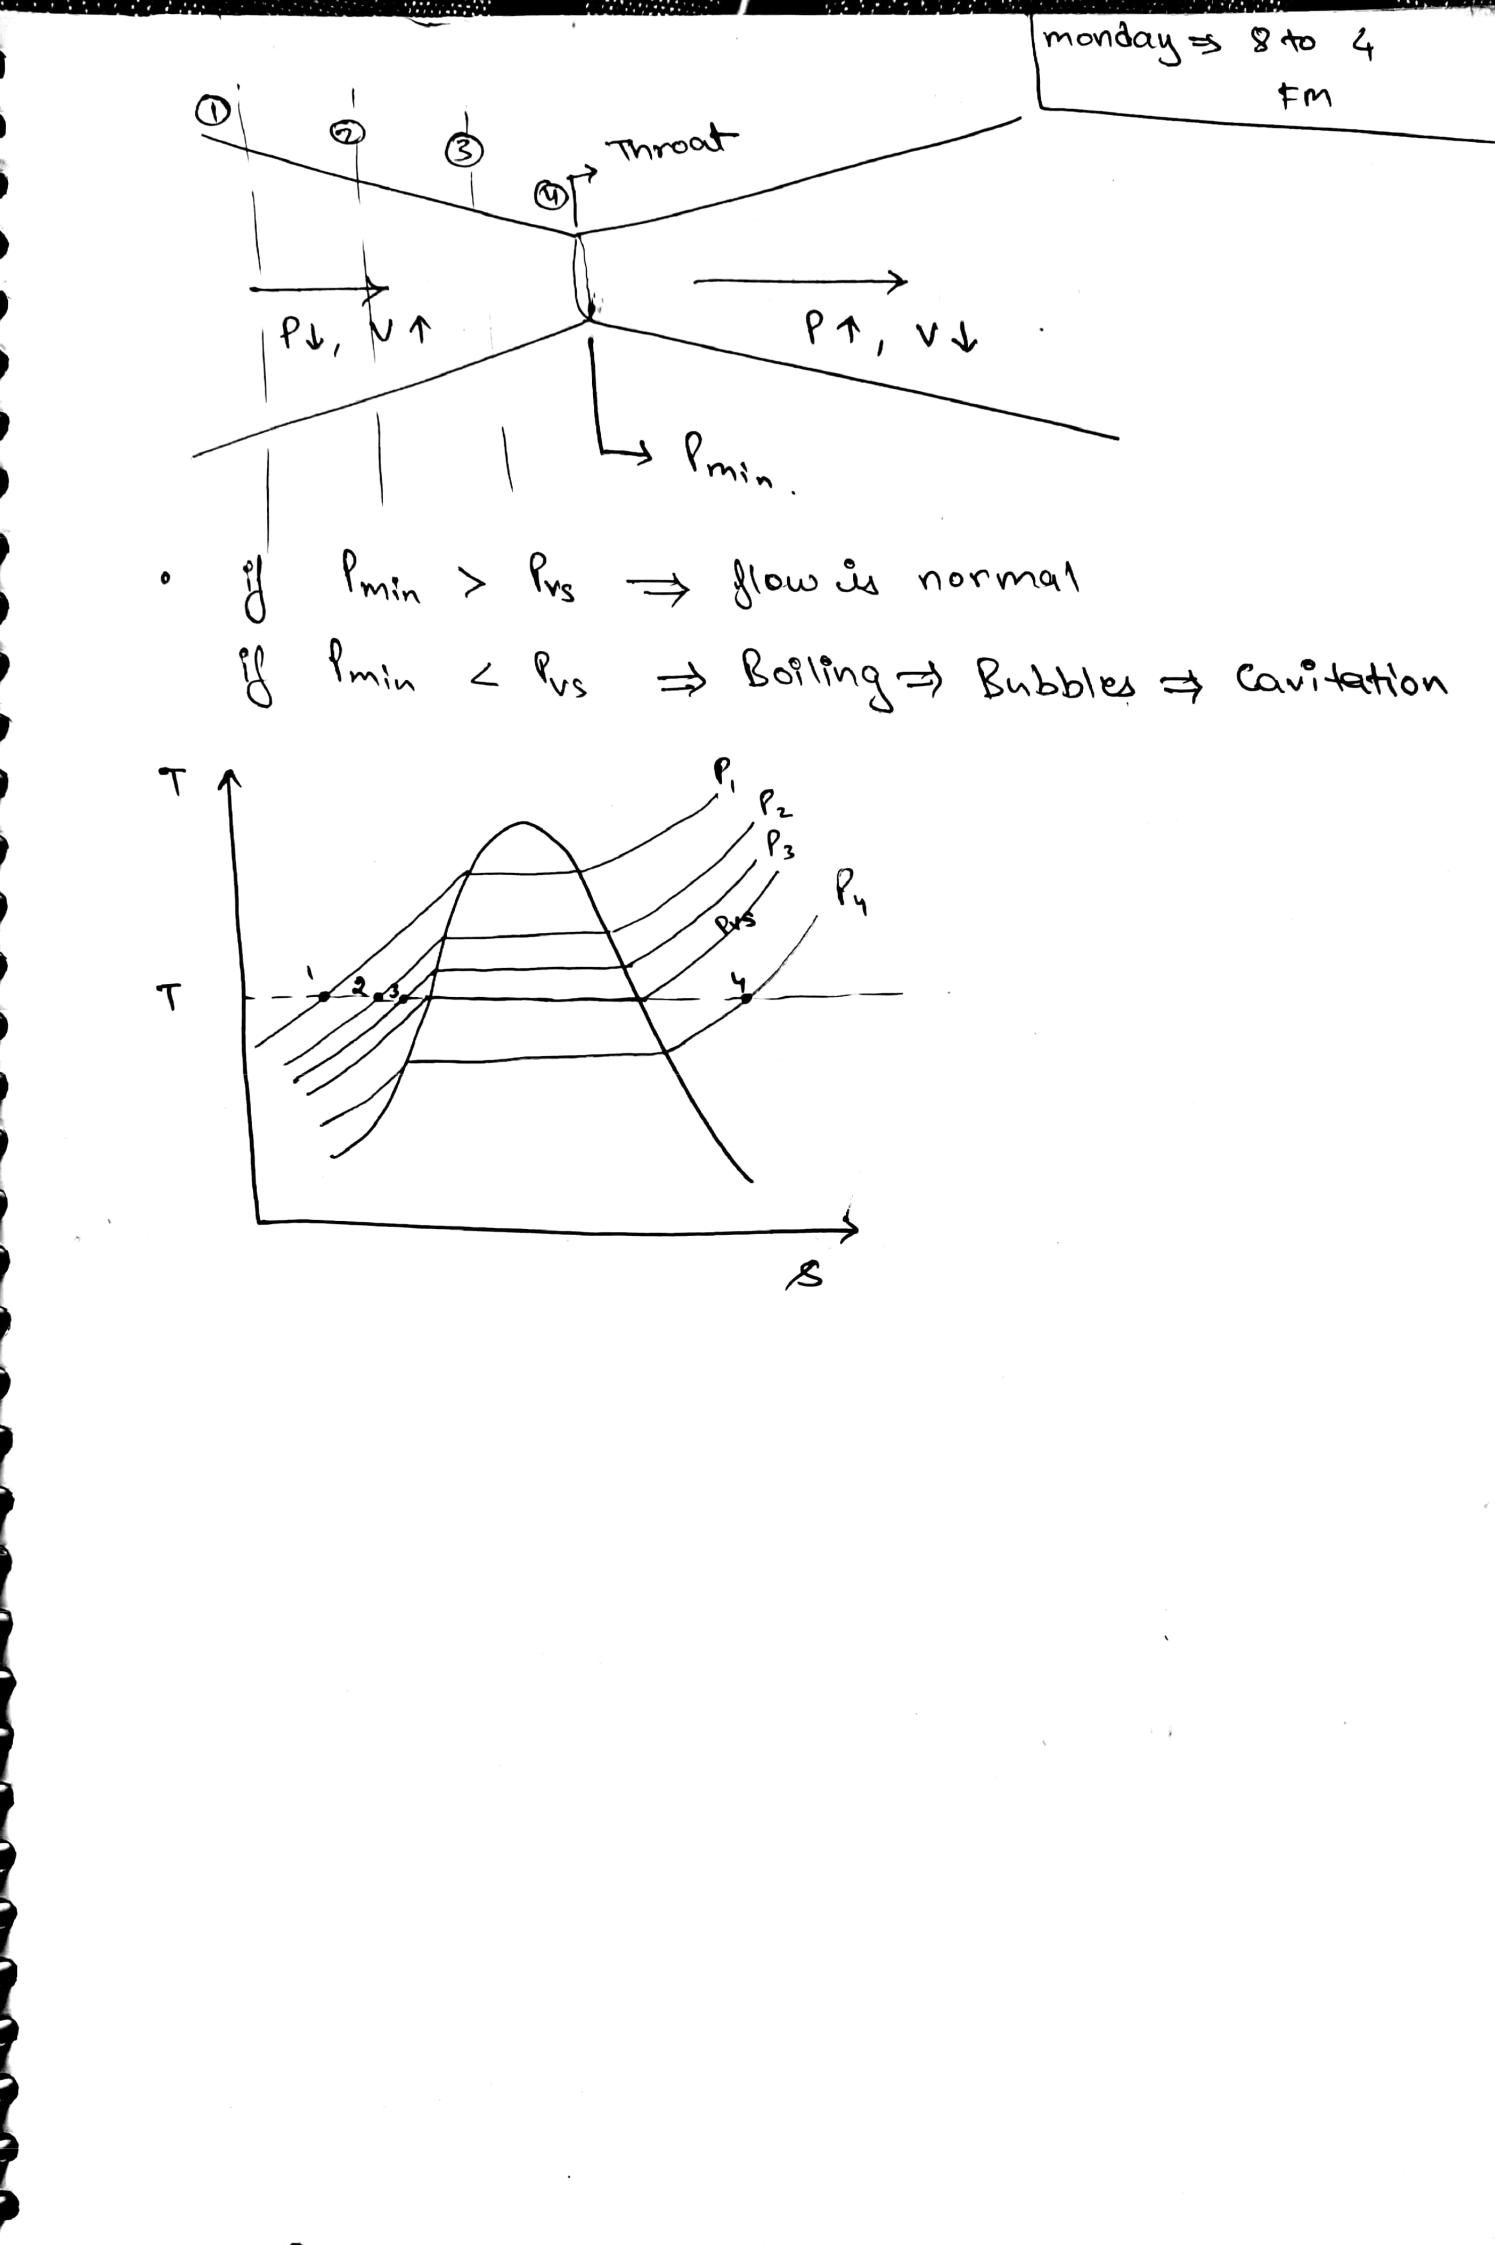 monday ⇒ 8 to 4
FM
① ② ③ ④ Throat
P↓, V↑
P↑, V↓
Pmin.
• if Pmin > Pvs ⇒ flow is normal
if Pmin < Pvs ⇒ Boiling ⇒ Bubbles ⇒ Cavitation
T
P1
P2
P3
P4
Pvs
T 1 2 3 4
S